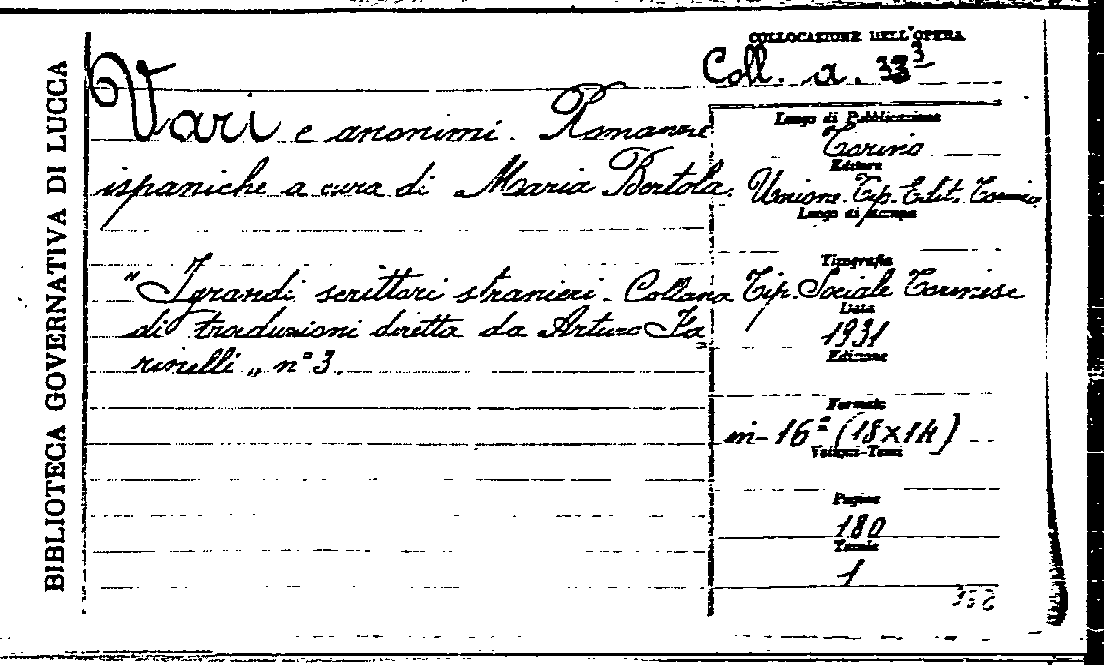 BIBLIOTECA GOVERNATIVA DI LUCCA
COLLOCAZIONE DELL'OPERA
Coll. a. 33 3
Vari e anonimi. Romanze
ispaniche a cura di Maria Bertola.
"I grandi scrittori stranieri. Collana
di traduzioni diretta da Arturo Fa=
rinelli„ n° 3.
Luogo di Pubblicazione
Torino
Editore
Unione Tip. Edit. Torino
Luogo di Stampa
Tipografia
Tip. Sociale Torinese
Data
1931
Edizione
Formato
in-16° (18x14)
Volumi-Tomi
Pagine
180
Tavole
1